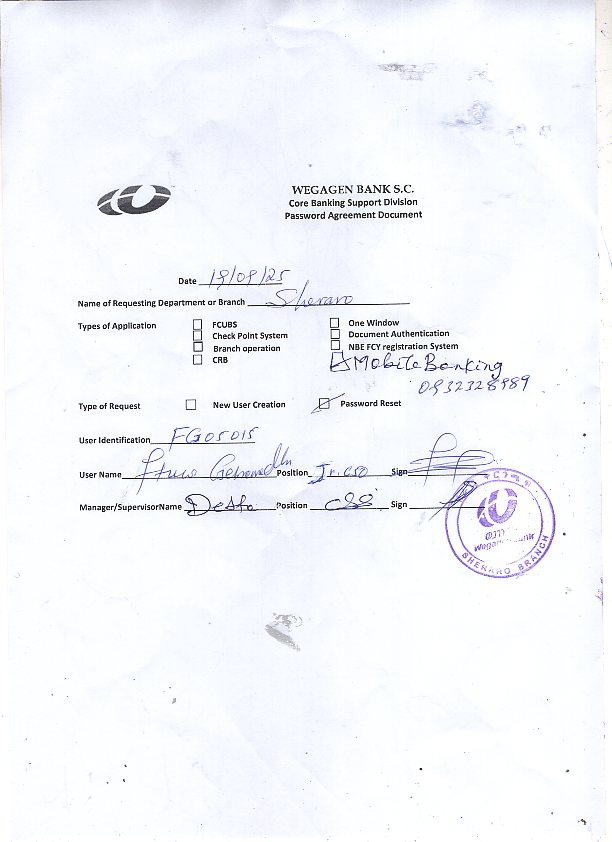 WEGAGEN BANK S.C.
Core Banking Support Division
Password Agreement Document
Date 19/09/25
Name of Requesting Department or Branch Sheraro
Types of Application
FCUBS
Check Point System
Branch operation
CRB
One Window
Document Authentication
NBE FCY registration System
Mobile Banking
0932328989
Type of Request New User Creation Password Reset
User Identification FG05015
User Name Position Jr. CSO Sign
Manager/SupervisorName Desta Position CSS Sign
Bank
SHERARO BRANCH